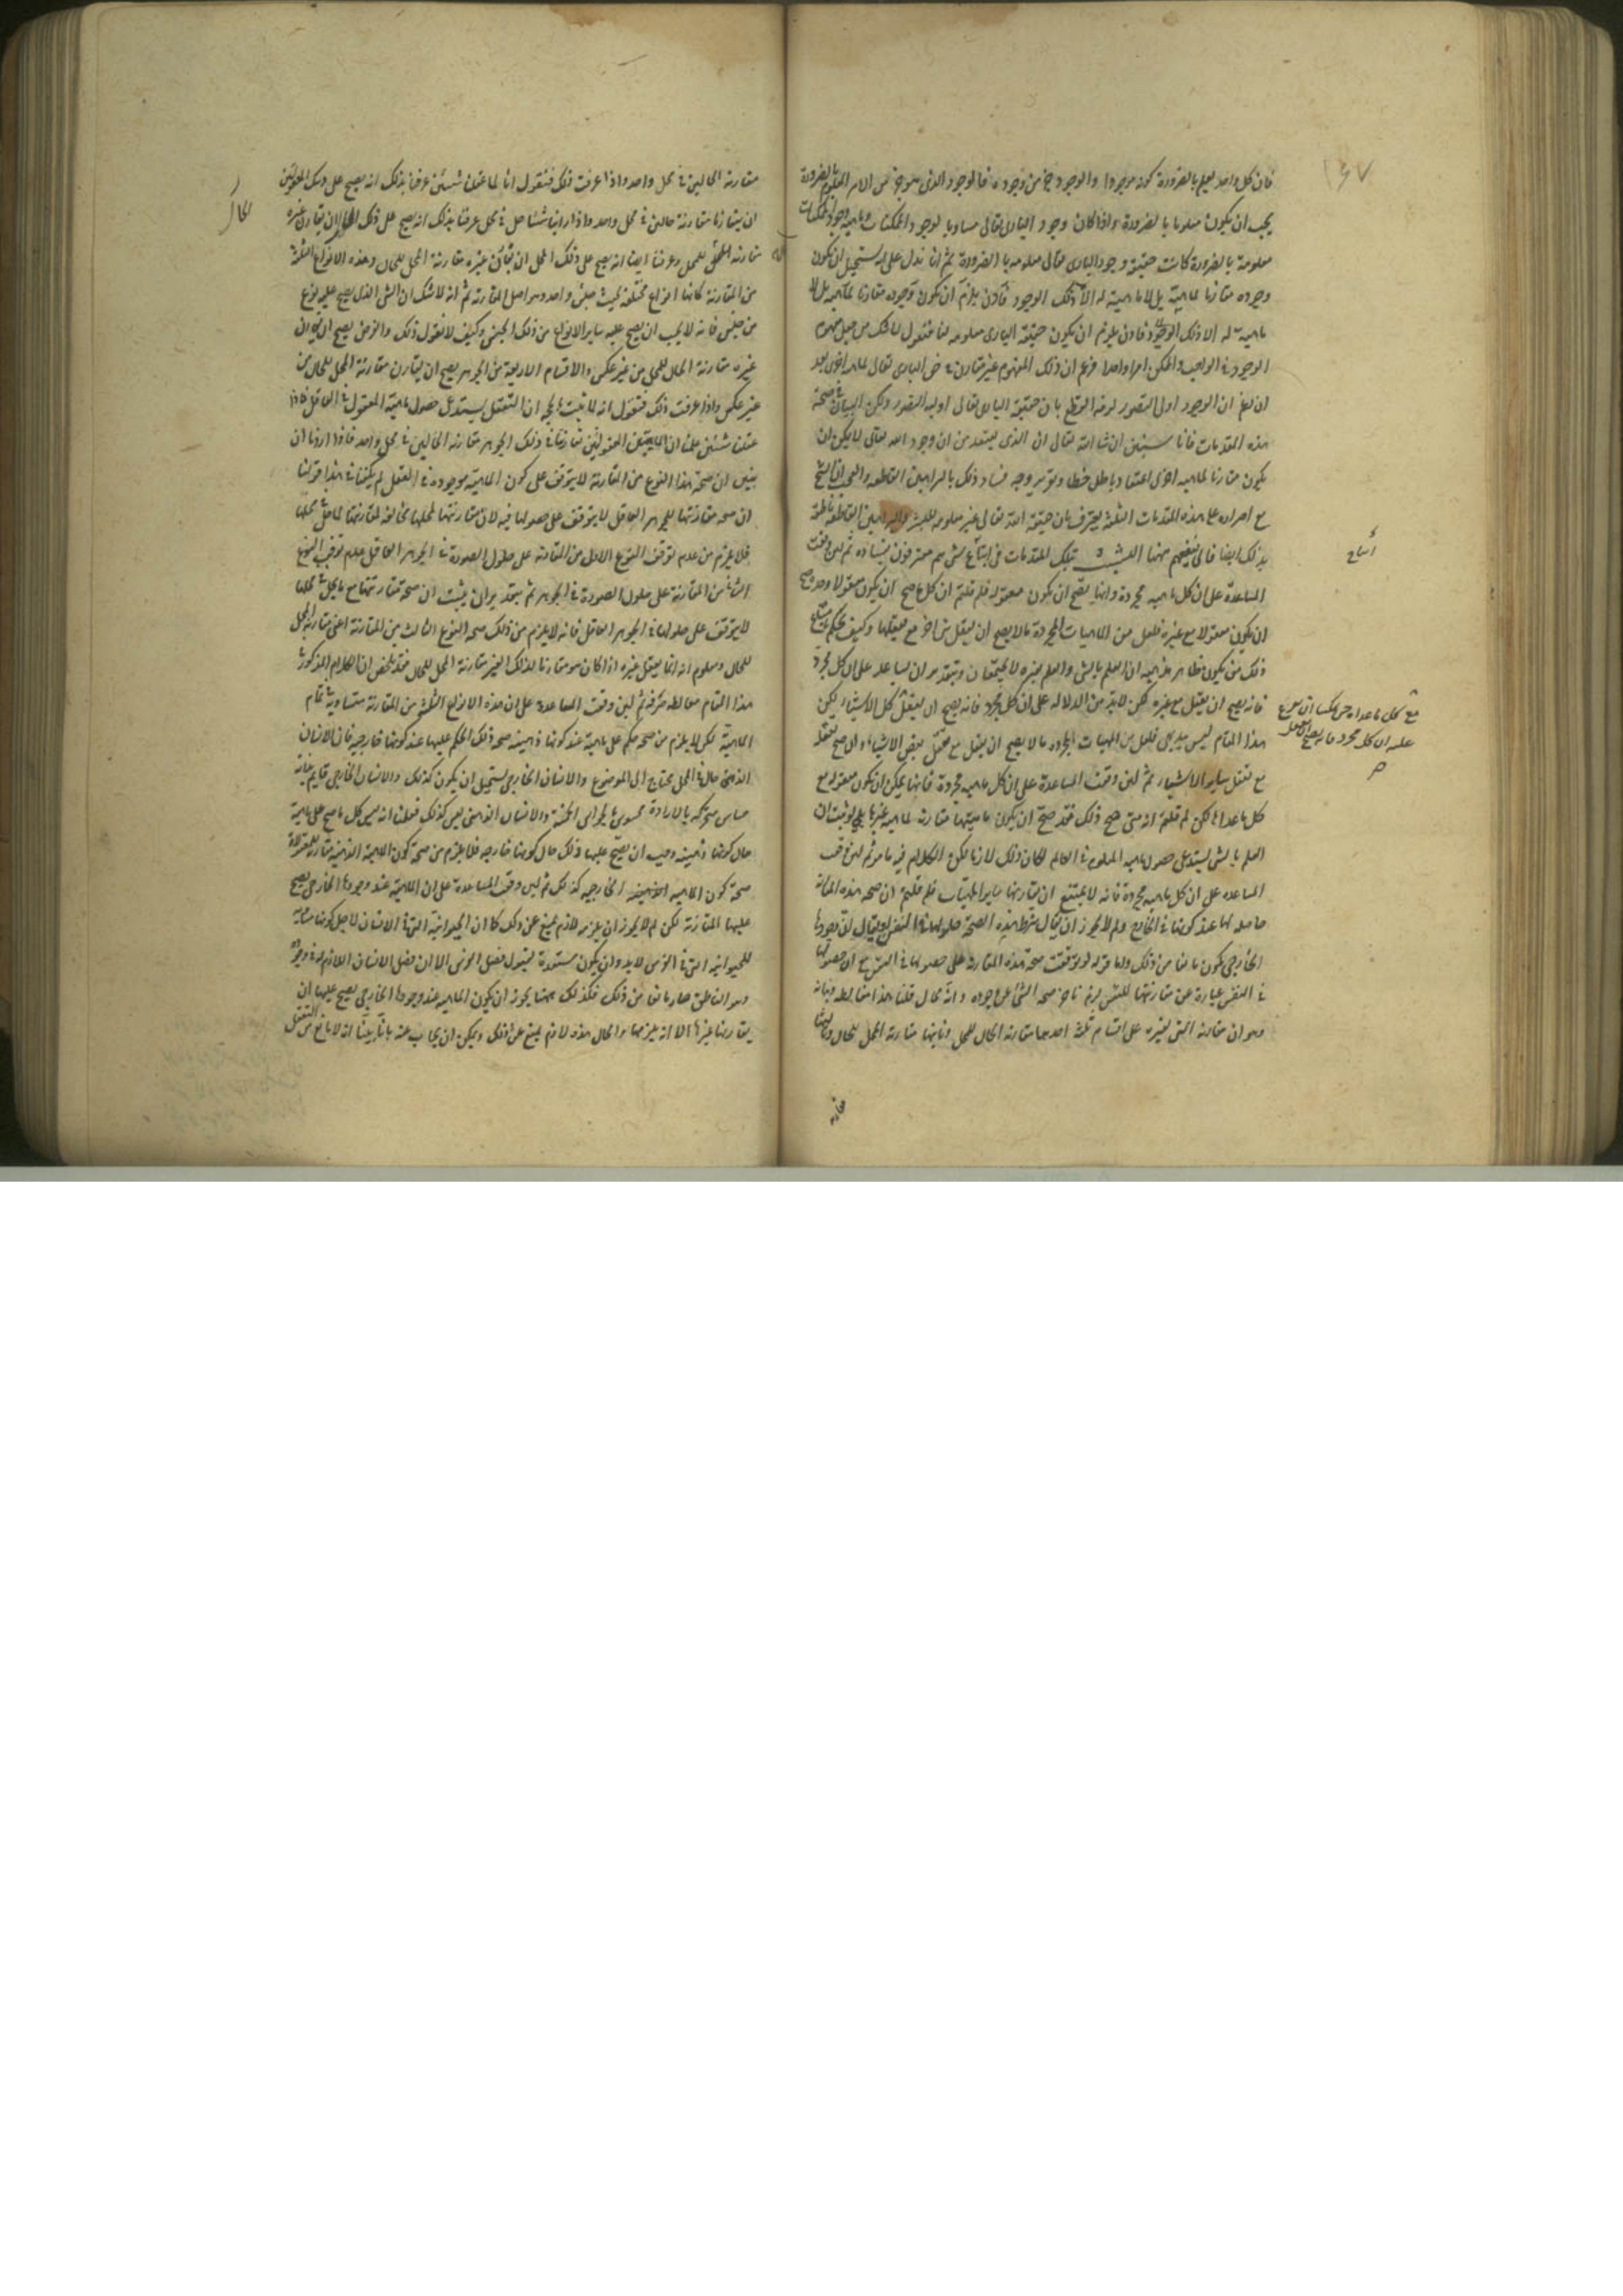 ١٤٧
فان كل واحد يعلم بالضرورة كونه موجودا والوجود جزء من وجوده فالوجود الذى هو جزء من الامر المعلوم بالضرورة
يجب ان يكون معلوما بالضرورة واذا كان وجود البارى تعالى مساويا لوجود الممكنات وماهية وجود الممكنات
معلومة بالضرورة كانت حقيقة وجود البارى تعالى معلومه بالضرورة ثم انا ندل على انه يستحيل ان يكون
وجوده مقارنا لماهية بل لا ماهية له الا ذلك الوجود فاذن يلزم ان يكون وجوده مقارنا لماهية بل لا
ماهية له الا ذلك الوجود فاذن يلزم ان يكون حقيقة البارى معلومه لنا فنقول لا شك من جعل مفهوم
الوجود فى الواجب والممكن امرا واحدا وزعم ان ذلك المفهوم غير مقارن فى حق البارى تعالى لماهية اخرى بعد
ان زعم ان الوجود اولى التصور لزمه القطع بان حقيقة البارى تعالى اولية التصور ولكن البيان فى صحة
هذه المقدمات فانا سنبين ان شاء الله تعالى ان الذى يعتقد من ان وجود الله تعالى لا يمكن ان
يكون مقارنا لماهيه اخرى اعتقاد باطل خطا ونقرر وجه فساد ذلك بالبراهين القاطعه والعجب ان الشيخ
مع اصراره على هذه المقدمات الثلثة يعترف بان حقيقة الله تعالى غير معلومه للبشر والبراهين القاطعة ناطقة
بذلك ايضا فانى يغنيهم تلك المقدمات فى انتاج شىء هم معترفون بفساده ثم لئن وقعت
انتاج
المساعدة على ان كل ماهيه مجردة وانها يصح ان يكون معقوله فلم قلتم ان كل ما صح ان يكون معقولا وحده صح
ان يكون معقولا مع غيره فلعل من الماهيات المجردة ما لا يصح ان يعقل شىء اخر مع تعقلها وكيف يحكم بامتناع
ذلك من يكون ظاهر مذهبه ان العلم بالشىء والعلم بغيره لا يجتمعان وبتقدير ان نساعد على ان كل مجرد
فانه يصح ان يعقل مع غيره لكن لابد من الدلالة على ان كل مجرد فانه يصح ان يعقل كل الاشياء لكن
هذا المقام ليس ببديهى فلعل من المهيات المجرده ما لا يصح ان يعقل مع تعقل بعض الاشياء وان صح تعقله
مع تعقل ساير الاشياء ثم لئن وقعت المساعدة على ان كل ماهيه مجردة فانها يمكن ان يكون معقوله مع
كل ما عداها لكن لم قلتم انه متى صح ذلك فقد صح ان يكون ماهيتها مقارنة لماهيه غيرها بلى لو ثبت ان
العلم بالشىء يستدعى حصول ماهيه المعلوم فى العالم لكان ذلك لازما لكن الكلام فيه ما مر ثم لئن وقعت
المساعده على ان كل ماهيه مجردة فانه لا يمتنع ان يقارنها ساير المهيات فلم قلتم ان صحه هذه المقارنة
حاصله لها عند كونها فى الخارج ولم لا يجوز ان يقال شرط هذه الصحة حلولها فى النفس او يقال ان وجودها
الخارجى يكون مانعا من ذلك واما قوله لو توقفت صحة هذه المقارنة على حصولها فى النفس مع ان حصولها
فى النفس عبارة عن مقارنتها للنفس لزم تاخر صحه الشىء عن وجوده وانه محال قلنا هذا مغالطه وبيانه
وهو ان مقارنة الشىء لغيره على اقسام ثلثة احدها مقارنة الحال للمحل وثانيها مقارنة المحل للحال وثالثها
مقارنه
مقارنة الحالين فى محل واحد واذا عرفت ذلك فنقول انا لما عقلنا شيئين عرفنا بذلك انه يصح على ذينك المعقولين
ان يتقارنا مقارنة حالين فى محل واحد واذا راينا شيئا حل فى محل عرفنا بذلك انه يصح على ذلك الحال ان يقارن غيره
مقارنة الحال للمحل وعرفنا ايضا انه يصح على ذلك المحل ان يقارن غيره مقارنة المحل للحال وهذه الانواع الثلثة
من المقارنة كانها انواع مختلفة تحت جنس واحد وهو اصل المقارنة ثم انه لا شك ان الشىء الذى يصح عليه نوع
من جنس فانه لا يجب ان يصح عليه ساير الانواع من ذلك الجنس وكيف لا نقول ذلك والعرض يصح ان يقارن
غيره مقارنة الحال للمحل من غير عكس والاقسام الاربعة من الجوهر يصح ان يقارن مقارنة المحل للحال من
غير عكس واذا عرفت ذلك فنقول انه لما ثبت لكم ان التعقل يستدعى حصول ماهية المعقول فى العاقل فاذا
عقلنا شيئين علمنا ان الماهيتين المعقولتين تقارنتا فى ذلك الجوهر مقارنة الحالين فى محل واحد فاذا اردنا ان
نبين ان صحة هذا النوع من المقارنة لا يتوقف على كون الماهية موجودة فى العقل لم يكفنا فى هذا قولنا
ان صحه مقارنتها للجوهر العاقل لا يتوقف على حصولها فيه لان مقارنتها لمحلها مخالفة لمقارنتها لما حل فى محلها
فلا يلزم من عدم توقف النوع الاول من المقارنة على حلول الصورة فى الجوهر العاقل عدم توقف النوع
الثانى من المقارنة على حلول الصورة فى الجوهر ثم بتقدير ان يثبت ان صحة مقارنتها مع ما يحل فى محلها
لا يتوقف على حلولها فى الجوهر العاقل فانه لا يلزم من ذلك صحه النوع الثالث من المقارنة اعنى مقارنة المحل
للحال ومعلوم انه انما يعقل غيره اذا كان هو مقارنا لذلك الغير مقارنة المحل للحال فقد تلخص ان الكلام المذكور فى
هذا المقام مغالطه صرفة ثم لئن وقعت المساعدة على ان هذه الانواع الثلثة من المقارنة متساوية فى تمام
الماهية لكن لا يلزم من صحه حكم على ماهية عند كونها ذهنيه صحه ذلك الحكم عليها عند كونها خارجية فان الانسان
الذهنى حال فى المحل محتاج الى الموضوع والانسان الخارجى يستحيل ان يكون كذلك والانسان الخارجى قايم بذاته
حساس متحرك بالارادة محسوس بالحواس الخمسة والانسان الذهنى ليس كذلك فعلمنا انه ليس كل ما صح على ماهية
حال كونها ذهنية وجب ان يصح عليها ذلك حال كونها خارجيه فلا يلزم من صحة كون الماهية الذهنية مقارنة للمعقولات
صحة كون الماهية الخارجيه كذلك ثم لئن وقعت المساعدة على ان الماهية عند وجودها الخارجى يصح
عليها المقارنة لكن لم لا يجوز ان يلزمه لازم يمنع عن ذلك كما ان الحيوانية التى فى الانسان لاجل كونها مشابهة
للحيوانية التى فى الفرس لابد وان يكون مستعدة لقبول فصل الفرس الا ان فصل الانسان اللازم له فى وجوده
وهو الناطق صار مانعا من ذلك فكذلك ههنا يجوز ان يكون الماهيه عند وجودها الخارجى يصح عليها ان
يقارنها غيرها الا انه يلزمها والحال هذه لازم يمنع عن ذلك ويمكن ان يجاب عنه بانا بينا انه لا مانع من التعقل